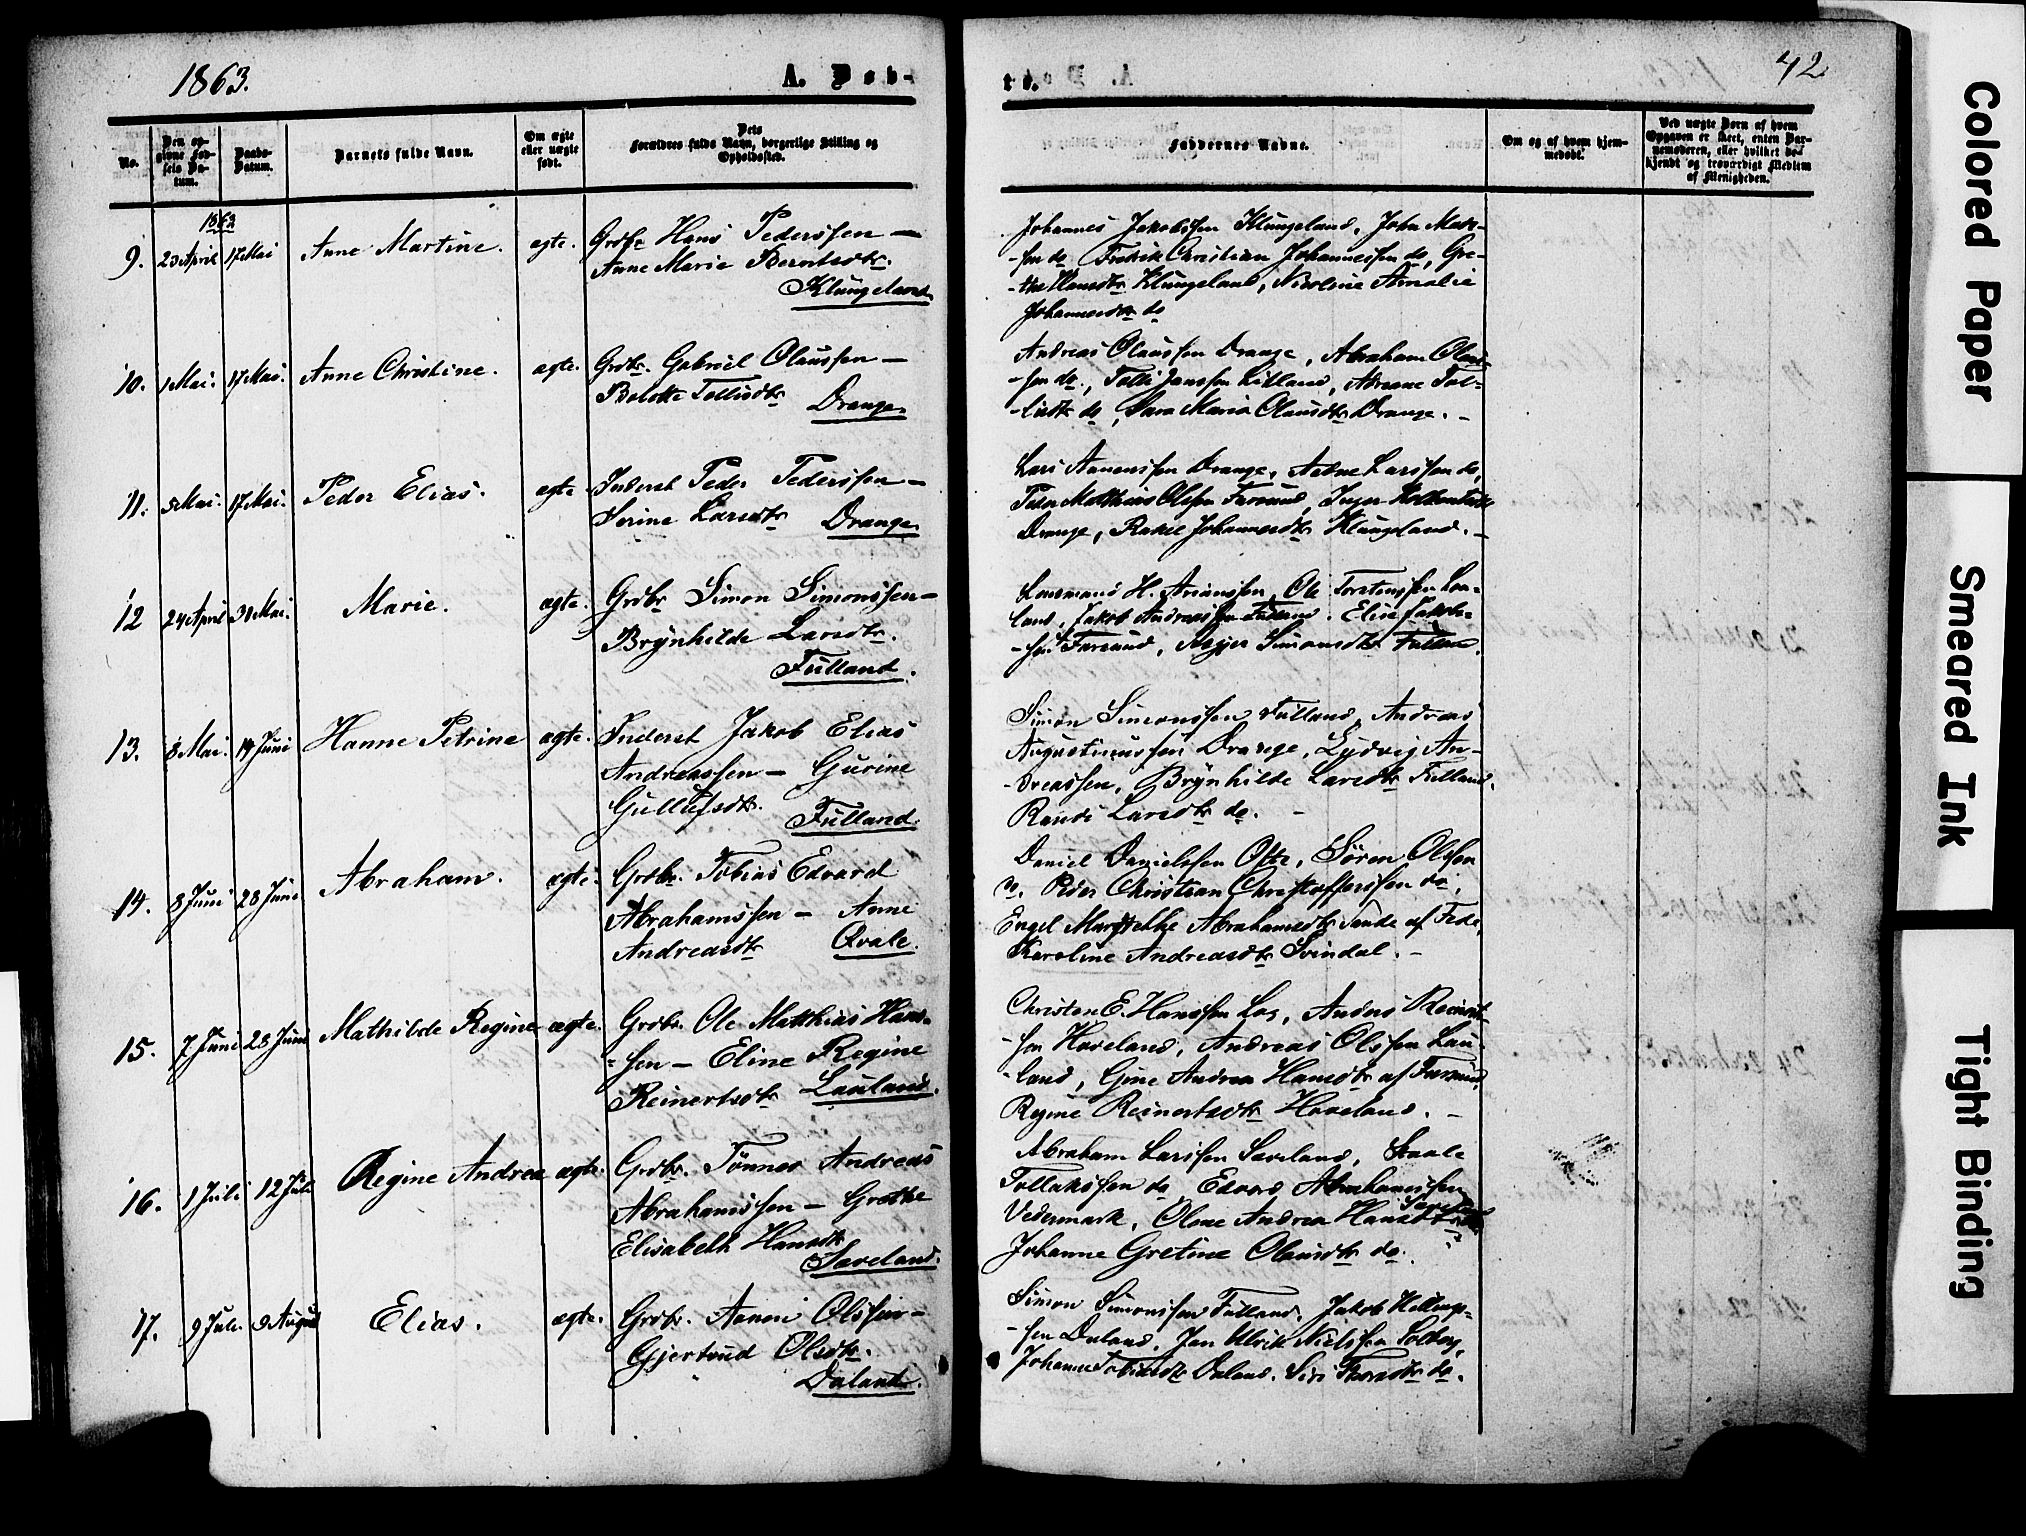 1863.
A. Døb-
te.
42
No.
Den op-
givne Fød-
sels Da-
tum.
Daabs-
Datum.
Barnets fulde Navn.
Om ægte
eller uægte
født.
Dets
Forældres fulde Navn, borgerlige Stilling og
Opholdssted.
Faddernes Navne.
Om og af hvem hjem-
medøbt.
Ved uægte Børn af hvem
Opgaven er skeet, enten Bar-
nemoderen, eller hvilket be-
kjendt og troværdigt Medlem
af Menigheden.
9. 23 April 17 Mai Anne Martine. ægte. Grdbr Hans Pederssen —
Anne Marie Berntsdtr.
Klungeland
Johannes Jakobssen Klungeland, John
-sen do Fredrik Christian Johannessen do, Gre-
-the Hansdtr Klungeland, Nicoline Amalie
Johannesdtr do
10. 1 Mai. 17 Mai. Anne Christine. ægte. Grdbr. Gabriel Olaussen —
Tollisdtr
Drange.
Andreas Olaussen Drange, Abraham Olaus-
-sen do., Tolli Janssen Litland, Adriane Tol-
-lisdtr do, Sara Maria Olausdtr Drange. —
11. 5 Mai. 17 Mai. Peder Elias. ægte Inderst Peder Pederssen —
Serine Larsdtr Drange
Lars Annenssen Drange, Larssen do,
Peder Matthias Olsen Farsund, Inger
Drange, Rakel Johannesdtr Klungeland. —
12 24 April 30 Mai. Marie. ægte. Grdbr Simon Simonssen —
Brynhilde Larsdtr.
Fulland.
Lensmand H. Arianssen, Ole Torstenssen Lou-
land, Jakob Andreassen Fulland. Elise Jakob-
-sen Farsund, Asger Simonsdtr Fulland.
13. 8 Mai. 14 Juni Hanne Petrine ægte. Inderst Jakob Elias
Andreassen — Gurine
Gullufsdtr. Fulland.
Simon Simonssen Fulland, Andreas
Augustinussen Drange, Ludvig An-
-dreassen, Brynhilde Larsdtr Fulland.
Randi Larsdtr do. —
14. 8 Juni 28 Juni Abraham. ægte. Grdbr. Tobias Edvard
Abrahamssen — Anne
Andreasdtr Qvale.
Daniel Danielssen Ofte, Søren Olssen
Peder Christian Christofferssen do,
Engel Abrahamsdtr Sande af Fede,
Karoline Andreasdtr Svindal. —
15. 7 Juni 28 Juni Mathilde Regine ægte. Grdbr. Ole Matthias Hans-
-sen — Eline Regine
Reinertsdtr Lauland.
Christen E. Hanssen Log, Anders Reinert-
-sen Haveland, Andreas Olssen Lau-
-land, Gine Andrea Hansdtr af Farsund,
Regine Reinertsdtr Haveland. —
16. 1 Juli 12 Juli Regine Andrea ægte. Grdbr. Tønnes Andreas
Abrahamssen — Grethe
Elisabeth Hansdtr
Saveland.
Abraham Larssen Saveland, Staale
Tollakssen do Edvard Abrahamssen
Vedermark, Olene Andrea Hansdtr
Johanne Gretine Olausdtr do.
17. 9 Juli 9 August Elias. ægte. Grdbr. Aanen Olssen —
Gjertrud Olsdtr.
Duland.
Simon Simonssen Fulland, Jakob
-sen Duland, Jan Ulrik Nielssen Solberg,
Johanne Tobiasdtr Duland. Siri do.
Colored Paper
Smeared Ink
Tight Binding